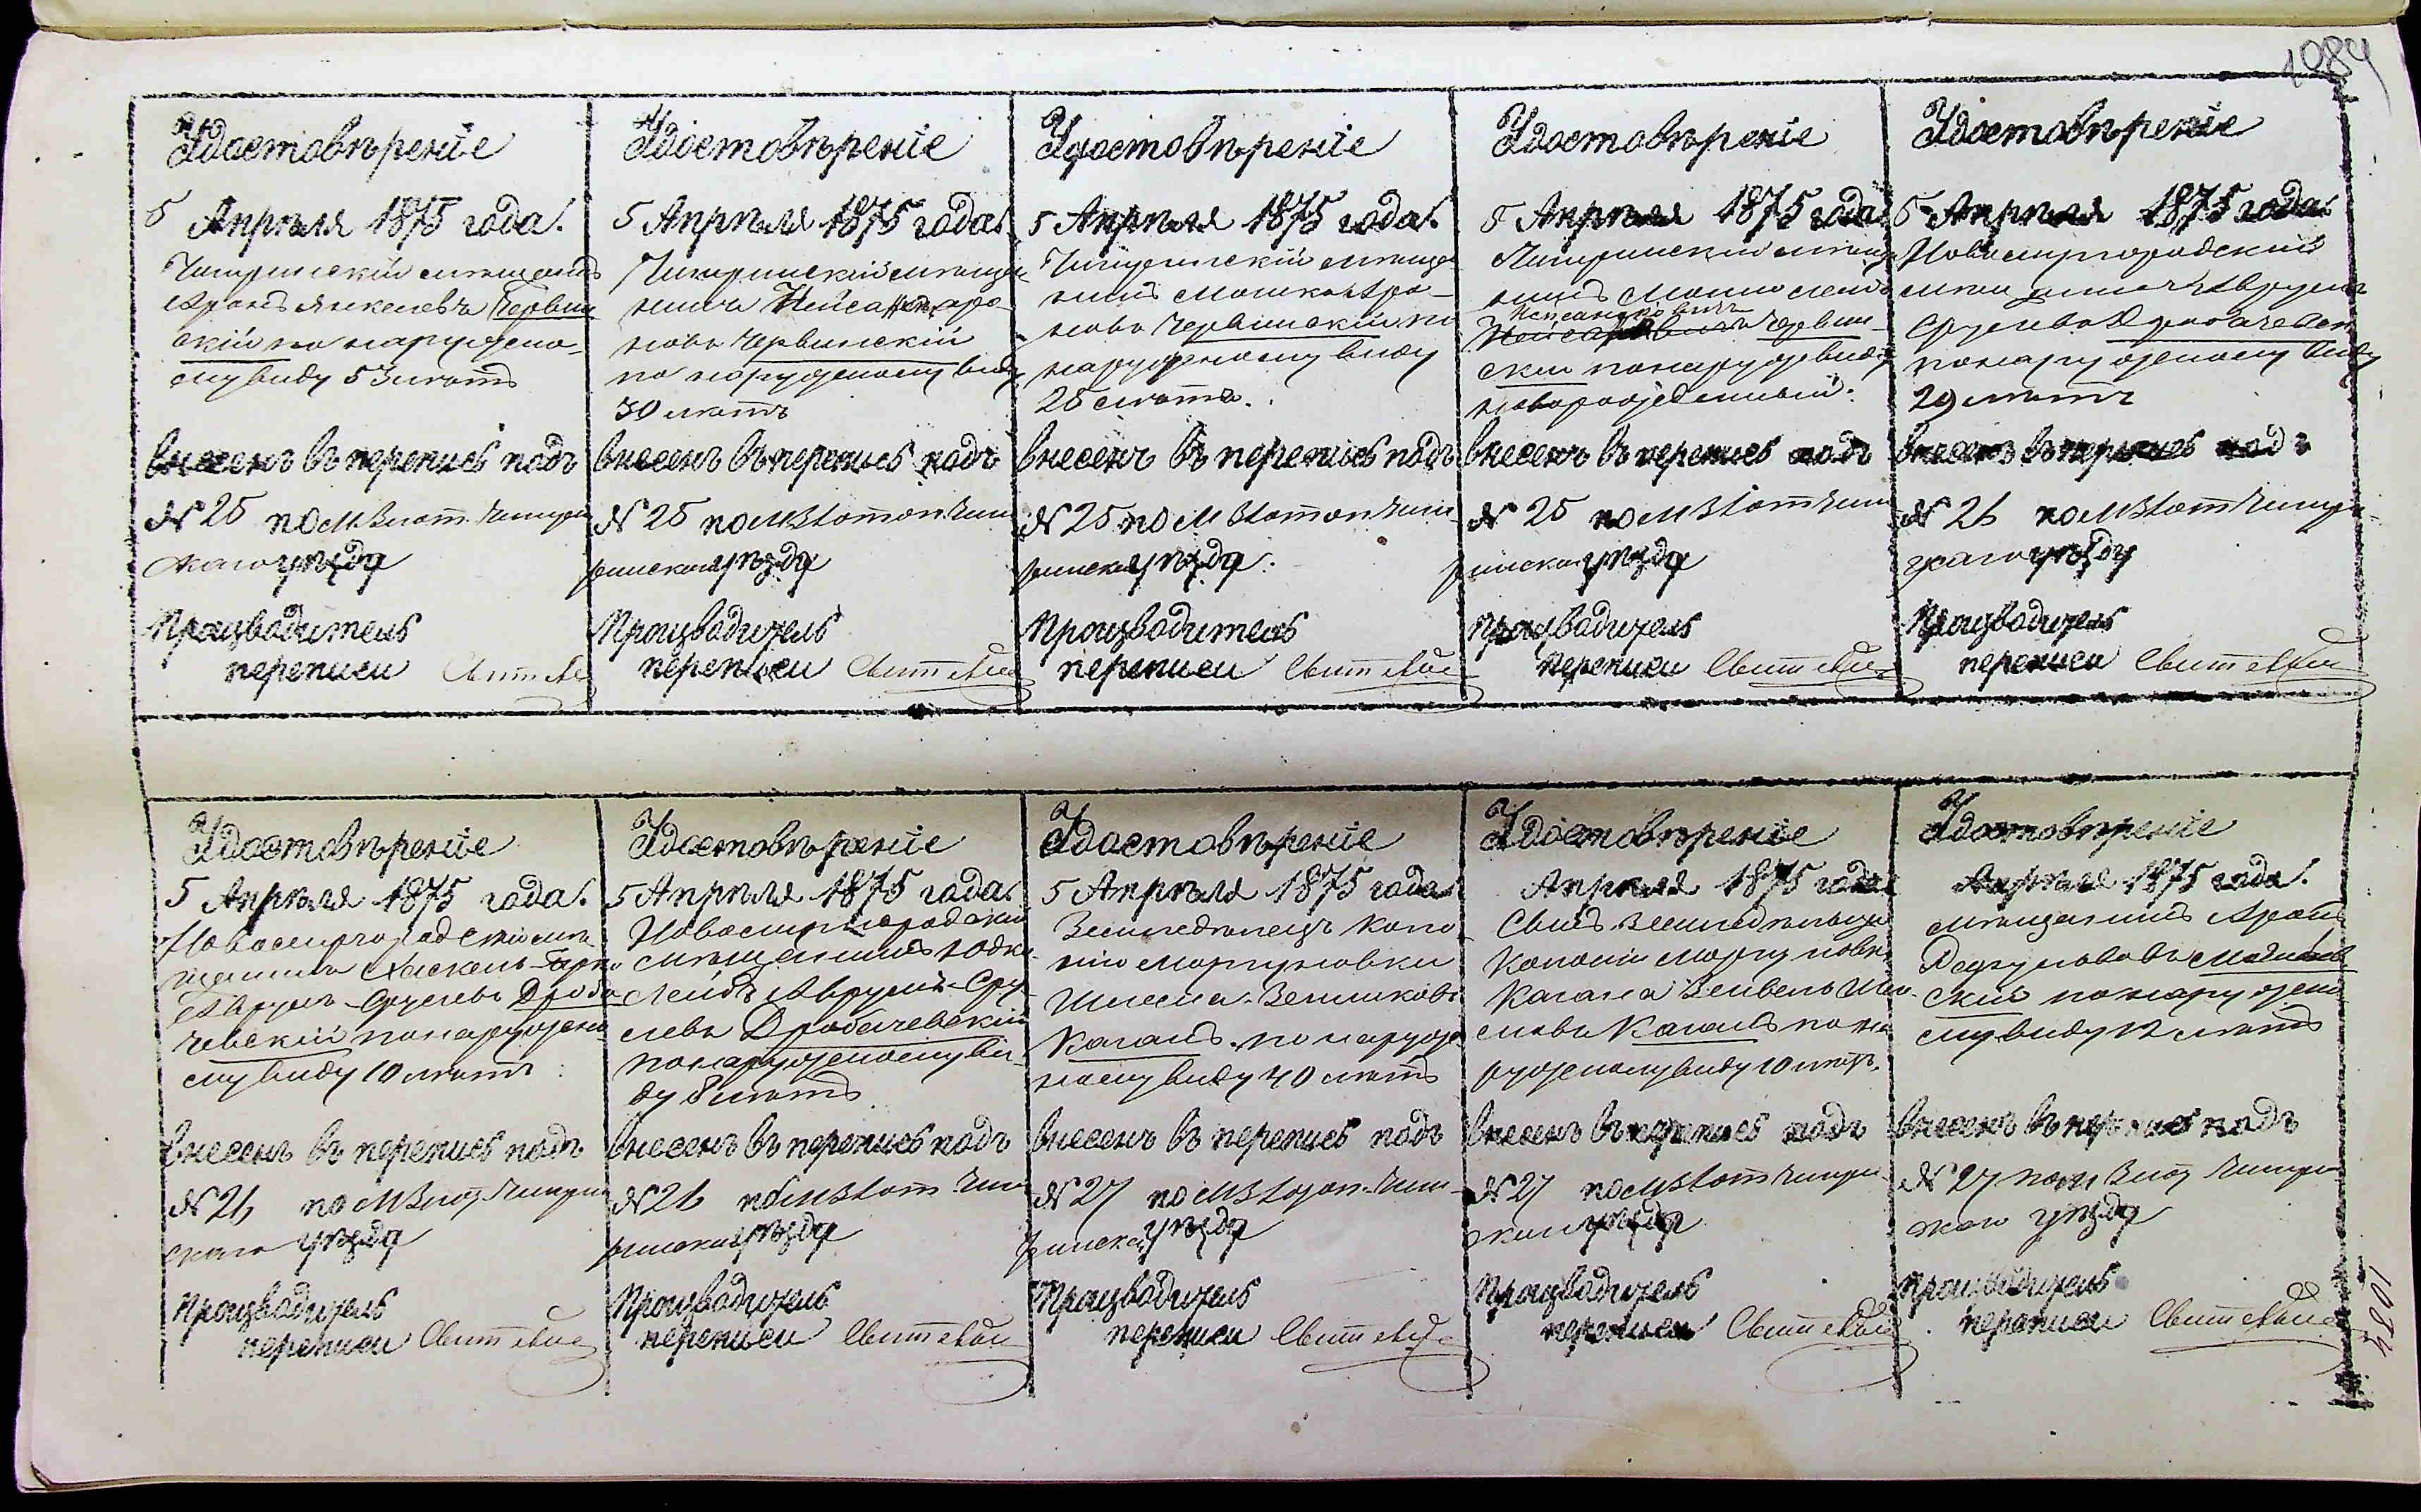 1084
Удостовѣреніе
5 Апрѣля 1875 года.
Чигиринскій мѣщанинъ
Аронъ Янкелевъ Червин
скій по наружно-
му виду 53 лѣтъ
внесенъ въ перепись подъ
№ 25 по М Злат. Чигирин
скаго уѣзда
Производитель
переписи
Удостовѣреніе
5 Апрѣля 1875 года.
Чигиринскій мѣща
нинъ Аро
новъ Червинскій
по наружному виду
30 лѣтъ
внесенъ въ перепись подъ
№ 25 по М Златоп Чиги
ринскаго уѣзда
Производитель
переписи
Удостовѣреніе
5 Апрѣля 1875 года.
Чигиринскій мѣща
нинъ Мошко Аро-
новъ Червинскій по
наружному виду
25 лѣтъ.
внесенъ въ перепись подъ
№ 25 по М Златоп Чиги-
ринскаго уѣзда.
Производитель
переписи
Удостовѣреніе
5 Апрѣля 1875 года
Чигиринскій мѣща
нинъ
Червин-
скій по наруж виду
новорожденный.
внесенъ въ перепись подъ
№ 25 по М Злат Чиги
ринскаго уѣзда
Производитель
переписи
Удостовѣреніе
5 Апрѣля 1875 года.
Новомиргородскій
мѣщанинъ Аврумъ
Срулевъ Дробачевскій
по наружному виду
29 лѣтъ
внесенъ въ перепись подъ
№ 26 по М Злат Чигирин
скаго уѣзда
Производитель
переписи
Удостовѣреніе
5 Апрѣля 1875 года.
Новомиргородскій мѣ
щанинъ Хаскель
Аврумъ-Срулевъ Дроба
чевскій по наружно
му виду 10 лѣтъ
внесенъ въ перепись подъ
№ 26 по М Злат Чигирин
скаго уѣзда
Производитель
переписи
Удостовѣреніе
5 Апрѣля 1875 года.
Новомиргородскій
мѣщанинъ Юдко
Лейбъ Аврумъ-Сру
левъ Дробачевскій
по наружному ви-
ду 8 лѣтъ
внесенъ въ перепись подъ
№ 26 по М Злат Чиги
ринскаго уѣзда
Производитель
переписи
Удостовѣреніе
5 Апрѣля 1875 года
Земледѣлецъ коло
ніи Моргуновки
Каганъ по наруж
ному виду 40 лѣтъ
внесенъ въ перепись подъ
№ 27 по М Златоп Чиги-
ринскаго уѣзда
Производитель
переписи
Удостовѣреніе
Апрѣля 1875 года
Сынъ земледѣльца
колоніи Моргуновки
Кагана Зейвель
Каганъ по на
ружному виду 10 лѣтъ.
внесенъ въ перепись подъ
№ 27 по М Злат Чигирин
скаго уѣзда
Производитель
переписи
Удостовѣреніе
Апрѣля 1875 года.
мѣщанинъ Аронъ
скій по наружно
му виду 12 лѣтъ
внесенъ въ перепись подъ
№ 27 по М Злат Чигирин
скаго уѣзда
Производитель
переписи
1084